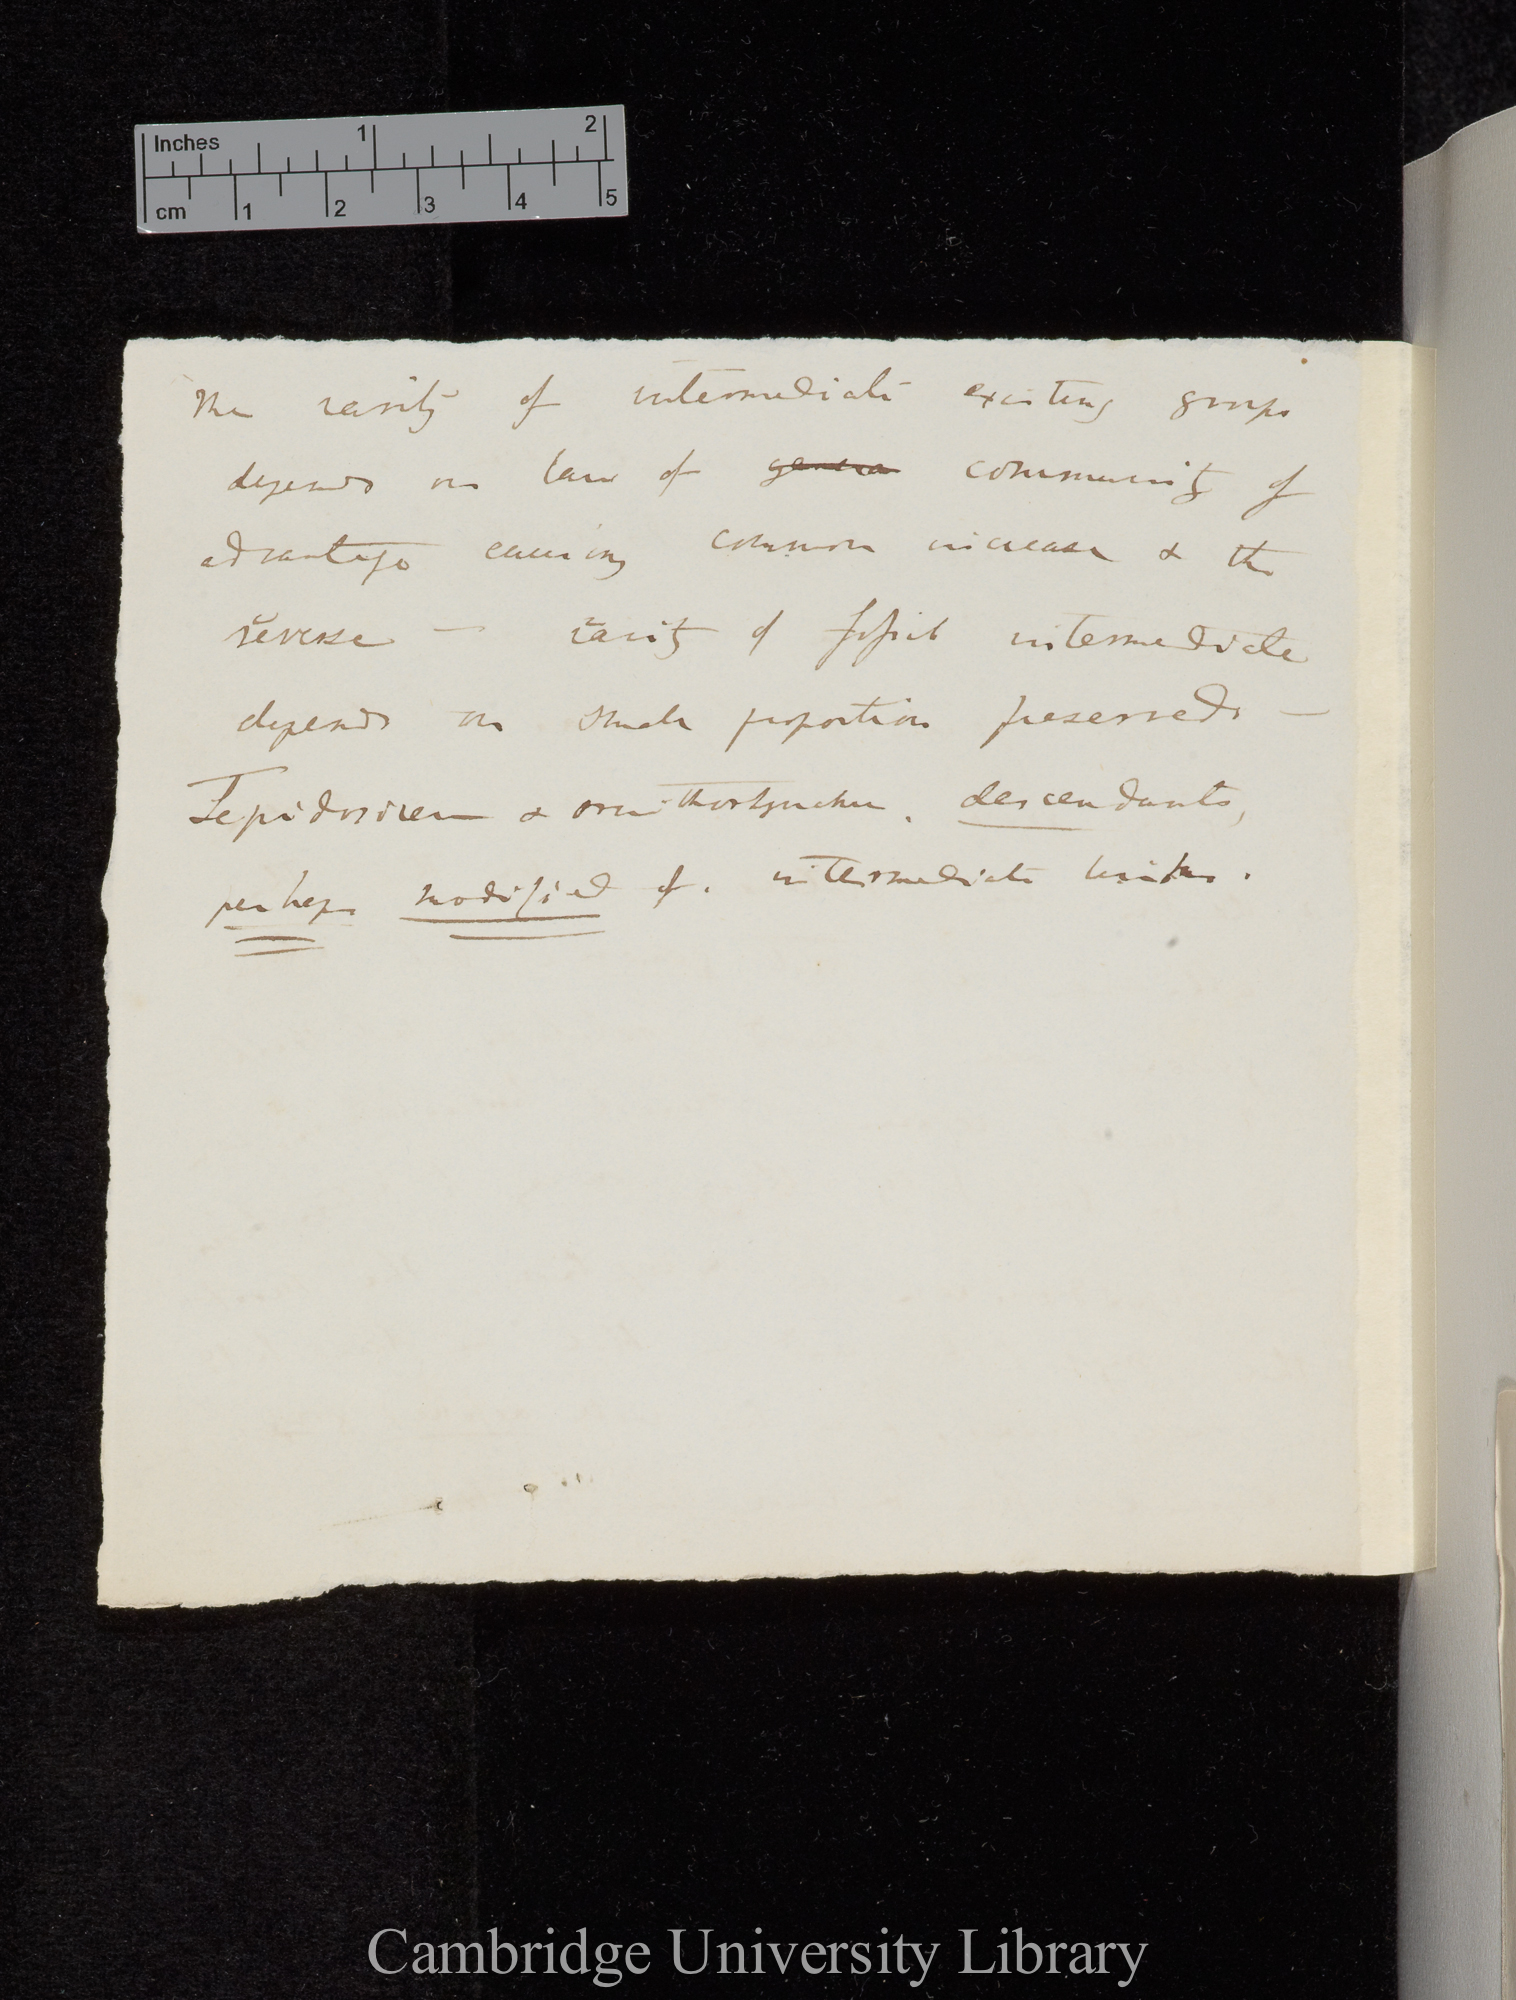 Inches 1 2
cm 1 2 3 4 5
The rarity of intermediate existing groups
depends on law of genera community of
advantage causing common increase & the
reverse — rarity of fossil intermediate
depends on small proportion preserved —
Lepidosiren & ornithorhynchus. descendants,
perhaps modified of. intermediate links.
Cambridge University Library